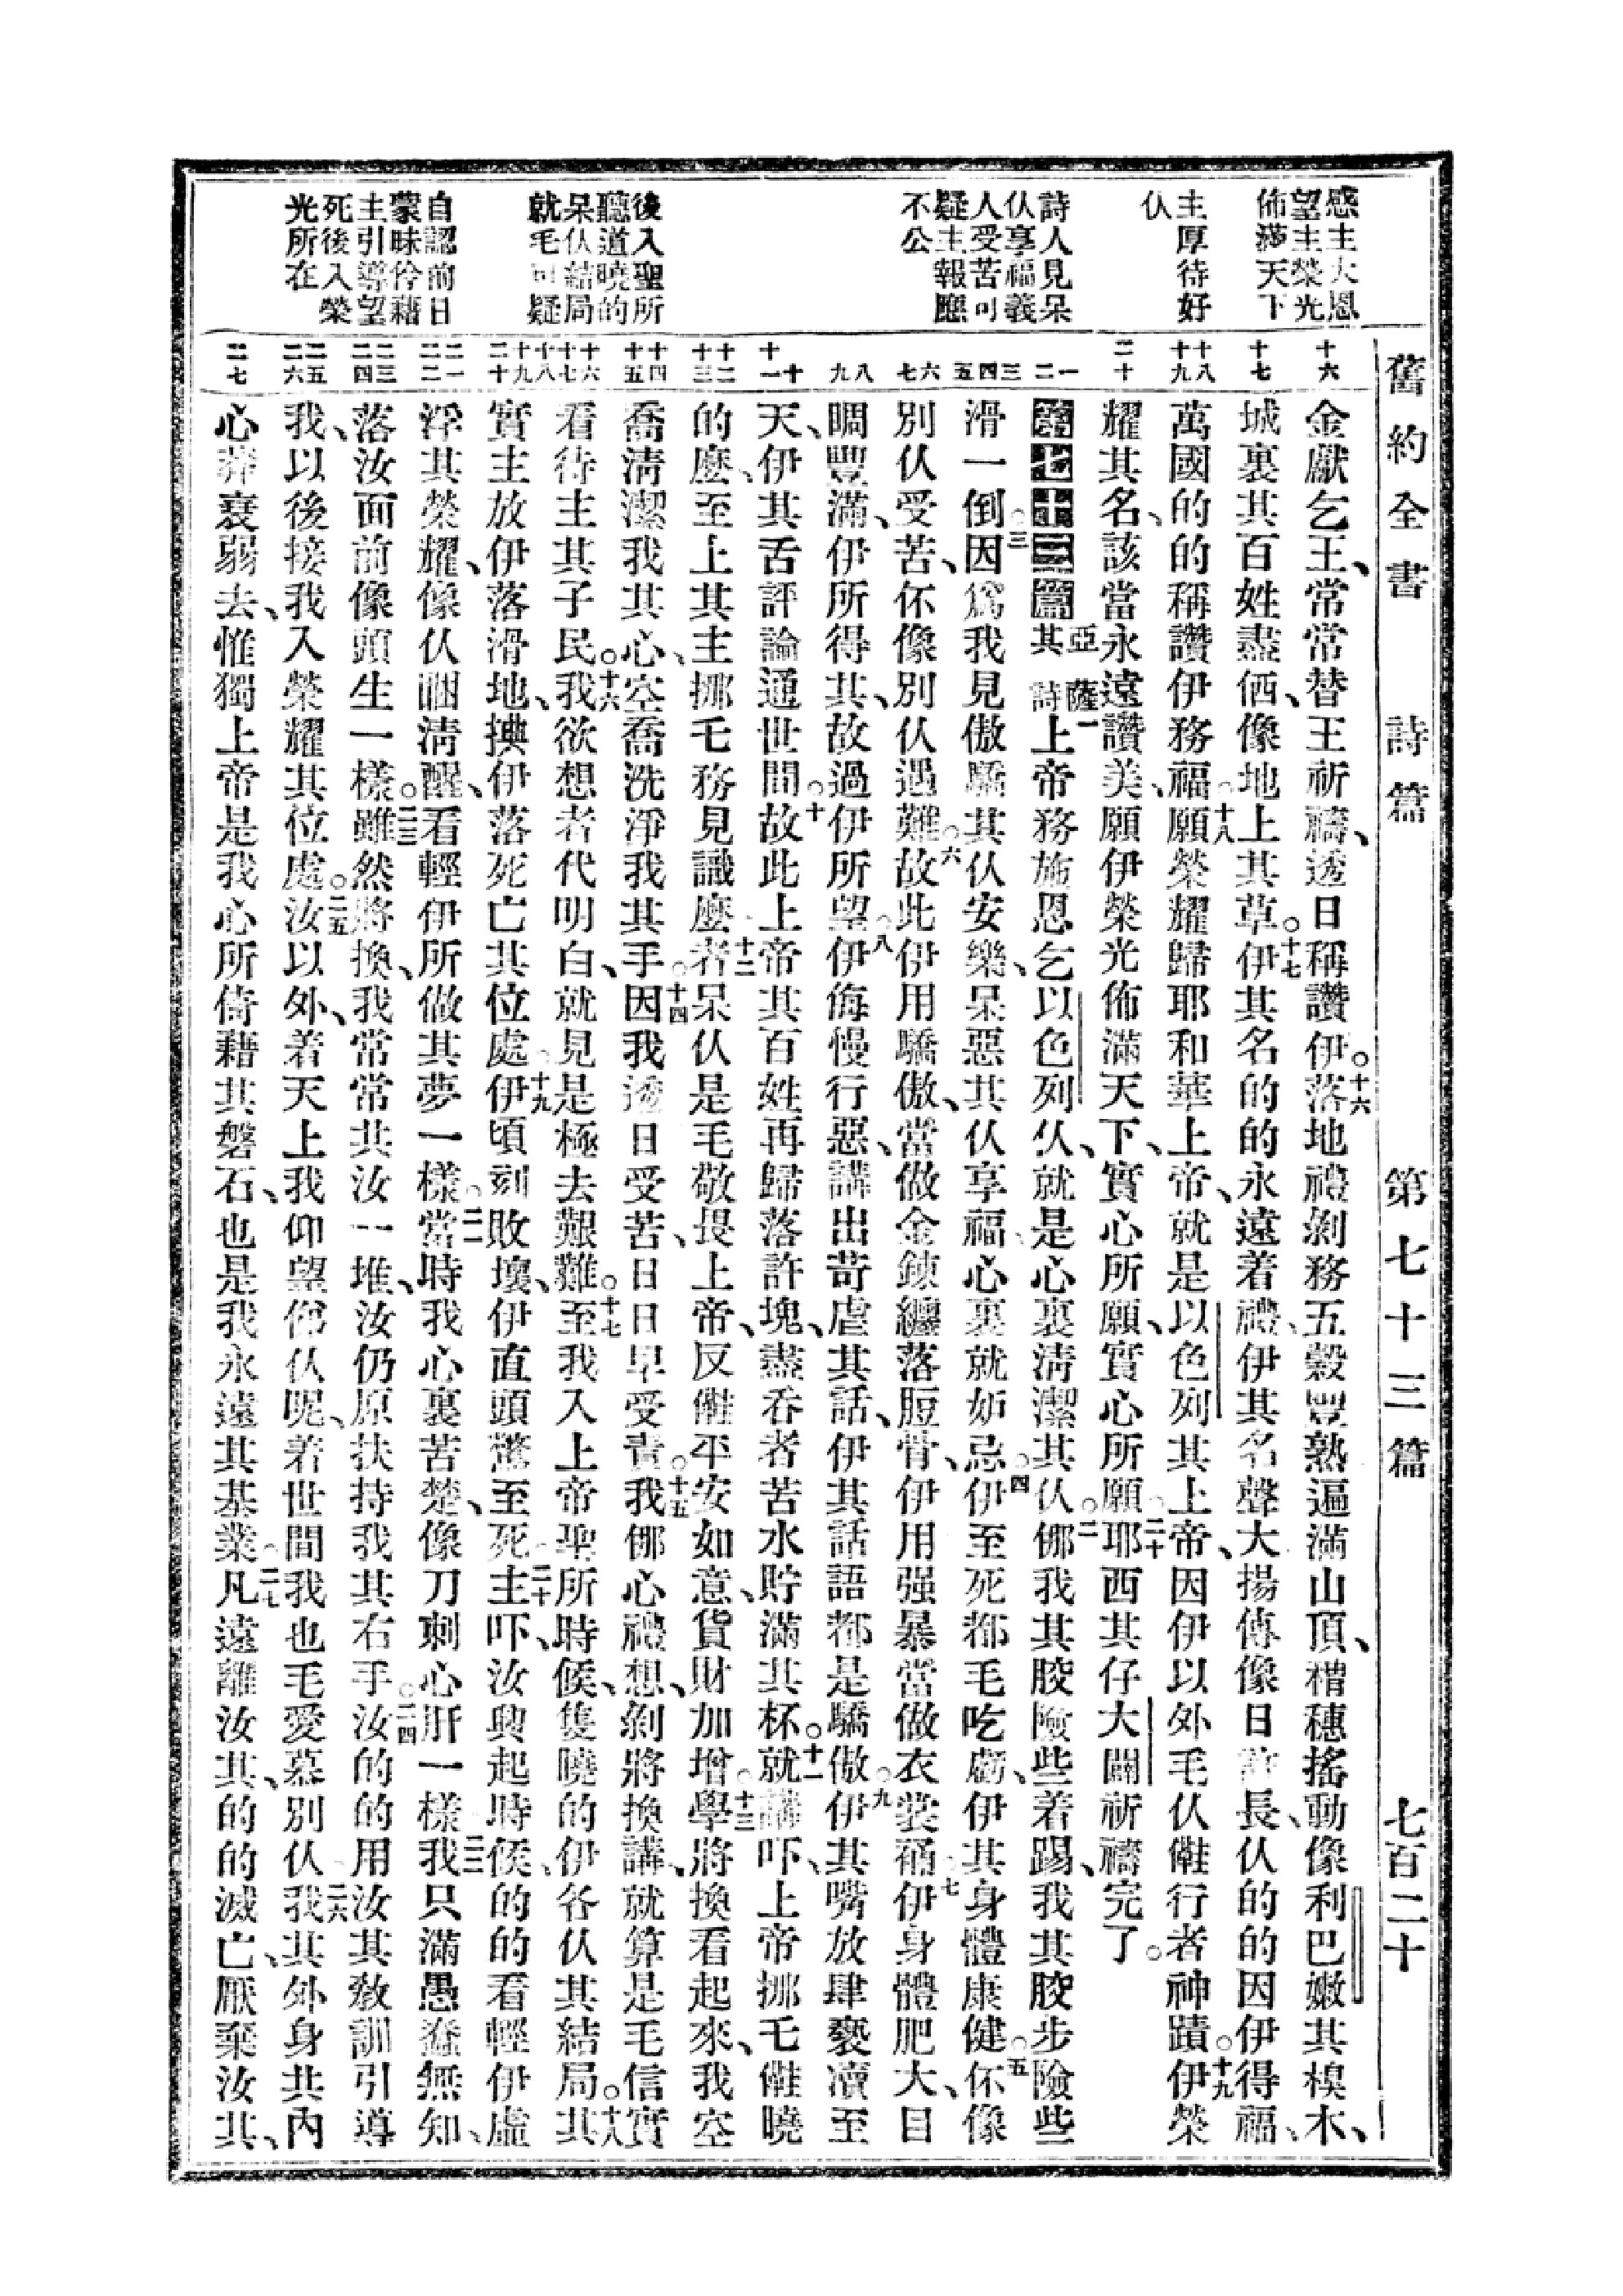 舊約全書　詩篇　第七十三篇　七百二十
感主大恩
望主榮光
佈滿天下
主厚待好
仈
詩人見呆
仈享福義
人受苦
疑主報應
不公
後入聖所
聽道曉的
呆仈結局
就毛可疑
自認前日
蒙昧伶藉
主引導望
死後入榮
光所在
十六
十七
十八
十九
二十
一
二
三
四
五
六
七
八
九
十
十一
十二
十三
十四
十五
十六
十七
十八
十九
二十
二一
二二
二三
二四
二五
二六
二七
金獻乞王、常常替王祈禱、透日稱讚伊。十六落地禮剝務五穀豐熟遍滿山頂、穧穗搖動像利巴嫩其模木、
城裏其百姓盡俹、像地上其草。十七伊其名的的永遠着禮、伊其名聲大揚傳像日長、仈的的因伊得福、
萬國的的稱讚伊務福。十八願榮耀歸耶和華上帝、就是以色列其上帝、因伊以外毛仈㑚行者神蹟。十九伊榮
耀其名、該當永遠讚美、願伊榮光佈滿天下、實心所願、實心所願。二十耶西其仔大闢祈禱完了。
第七十三篇 亞薩其詩 一上帝務施恩乞以色列仈、就是心裏清潔其仈。二儂我其骹險些着踢、我其骹步險些
滑一倒。三因爲我見傲驕其仈安樂、呆惡其仈享福、心裏就妒忌。四伊至死都毛吃虧、伊其身體康健。五伓像
別仈受苦、伓像別仈遇難。六故此伊用驕傲、當做金鍊纏落脰骨、伊用强暴當做衣裳䘼伊身。七體肥大、目
瞯豐滿、伊所得其、故過伊所望。八伊侮慢行惡、講出苛虐其話、伊其話語都是驕傲。九伊其嘴放肆褻瀆至
天、伊其舌評論通世間。十故此上帝其百姓再歸落許塊、盡吞者苦水貯滿其杯。十一就講吓、上帝挪乇㑚曉
的麽、至上其主挪乇務見識麽。十二者呆仈是毛敬畏上帝、反㑚平安如意、貨財加增。十三學將換看起來、我空
喬清潔我其心、空喬洗淨我其手。十四因我透日受苦、日日早受責。十五我儂心禮想、剝將換講、就算是毛信實
看待主其子民。十六我欲想者代明白、就見是極去艱難。十七至我入上帝聖所時候、隻曉的伊各仈其結局。十八其
實主放伊落滑地、㨃伊落死亡其位處。十九伊頃刻敗壞、伊直頭驚至死。二十主吓、汝興起時候、的的看輕伊虛
浮其榮耀、像仈𥇔清醒、看輕伊所做其夢一樣。二一當時我心裏苦楚、像刀刺心肝一樣。二二我只滿愚蠢無知、
落汝面前像頭生一樣。二三雖然將換、我常常共汝一堆、汝仍原扶持我其右手。二四汝的的用汝其敎訓引導
我、以後接我入榮耀其位處。二五汝以外、着天上我仰望𠆧仈呢、着世間我也毛愛慕別仈。二六我其外身共內
心莽衰弱去、惟獨上帝是我心所倚藉其磐石、也是我永遠其基業。二七凡遠離汝其、的的滅亡、厭棄汝其、